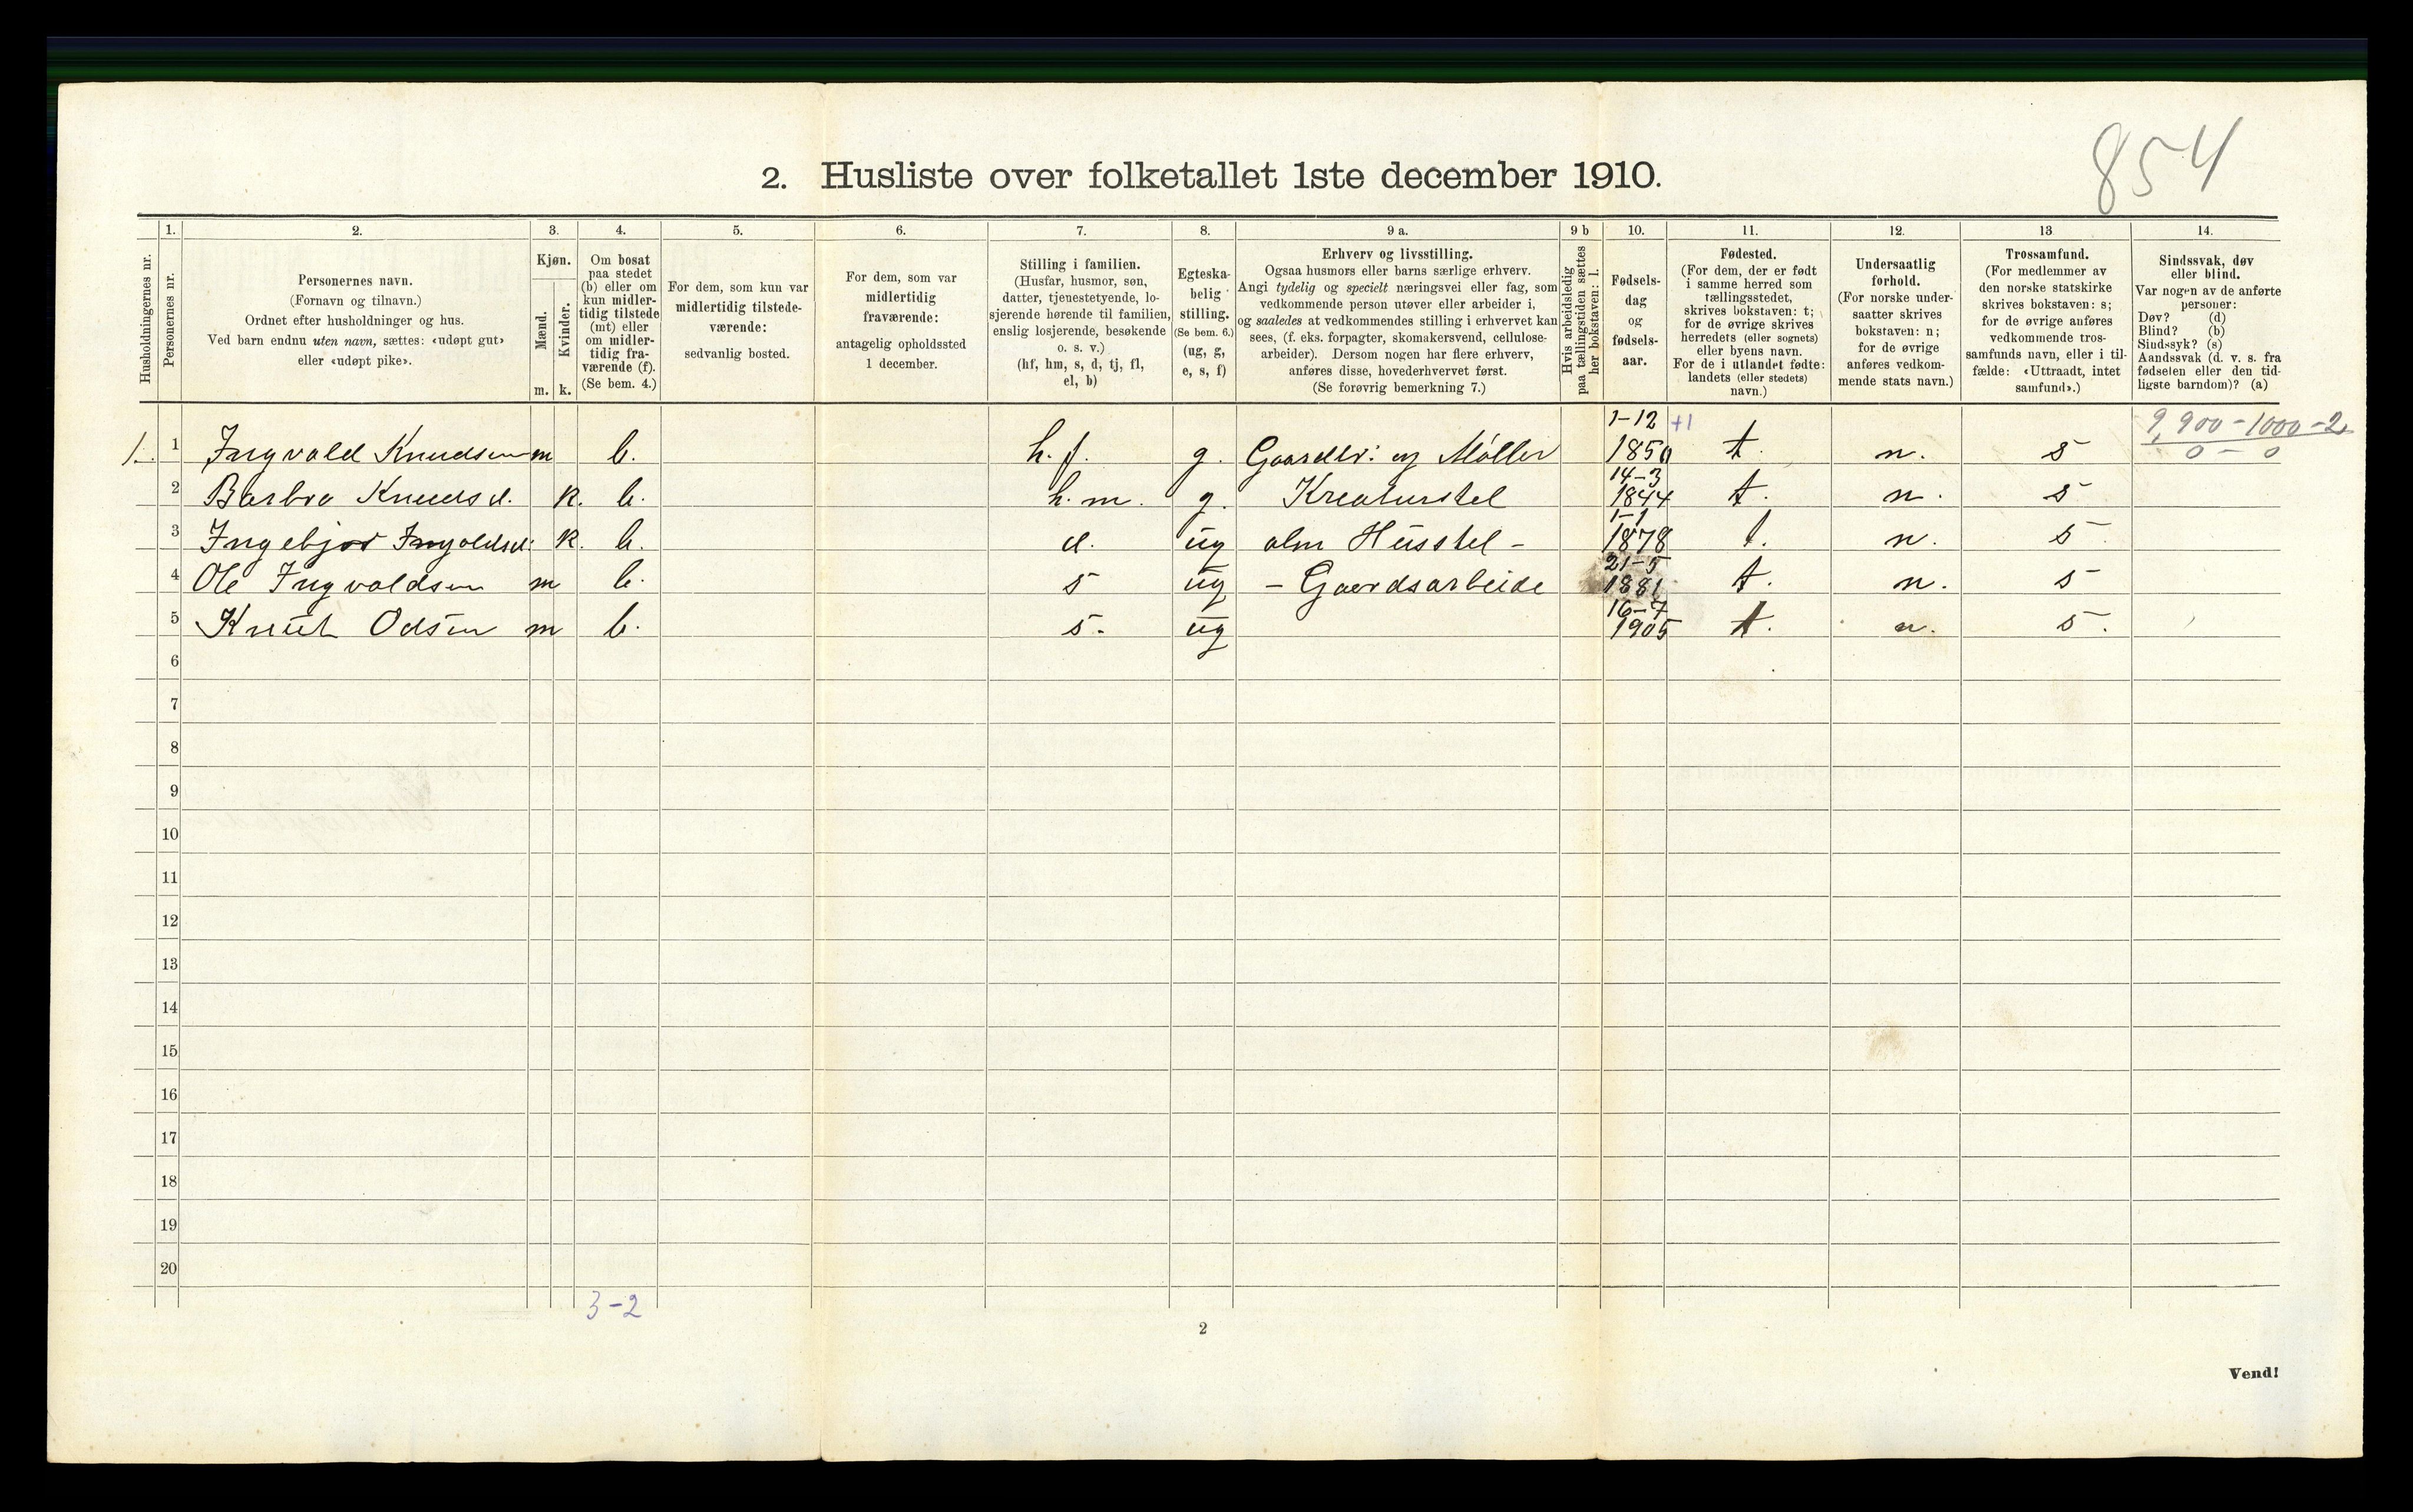 854
2. Husliste over folketallet 1ste december 1910.
Husholdningernes nr.
1.
Personernes nr.
2.
Personernes navn.
(Fornavn og tilnavn.)
Ordnet efter husholdninger og hus.
Ved barn endnu uten navn, sættes: «udøpt gut»
eller «udøpt pike».
3.
Kjøn.
Mænd.
m.
Kvinder.
k.
4.
Om bosat
paa stedet
(b) eller om
kun midler-
tidig tilstede
(mt) eller
om midler-
tidig fra-
værende (f).
(Se bem. 4.)
5.
For dem, som kun var
midlertidig tilstede-
værende:
sedvanlig bosted.
6.
For dem, som var
midlertidig
fraværende:
antagelig opholdssted
1 december.
7.
Stilling i familien.
(Husfar, husmor, søn,
datter, tjenestetyende, lo-
sjerende hørende til familien,
enslig losjerende, besøkende
o. s. v.)
(hf, hm, s, d, tj, fl,
el, b)
8.
Egteska-
belig
stilling.
(Se bem. 6.)
(ug, g,
e, s, f)
9 a.
Erhverv og livsstilling.
Ogsaa husmors eller barns særlige erhverv.
Angi tydelig og specielt næringsvei eller fag, som
vedkommende person utøver eller arbeider i,
og saaledes at vedkommendes stilling i erhvervet kan
sees, (f. eks. forpagter, skomakersvend, cellulose-
arbeider). Dersom nogen har flere erhverv,
anføres disse, hovederhvervet først.
(Se forøvrig bemerkning 7.)
9 b
Hvis arbeidsledig
paa tællingstiden sættes
her bokstaven: l.
10.
Fødsels-
dag
og
fødsels-
aar.
11.
Fødested.
(For dem, der er født
i samme herred som
tællingsstedet,
skrives bokstaven: t;
for de øvrige skrives
herredets (eller sognets)
eller byens navn.
For de i utlandet fødte:
landets (eller stedets)
navn.)
12.
Undersaatlig
forhold.
(For norske under-
saatter skrives
bokstaven: n;
for de øvrige
anføres vedkom-
mende stats navn.)
13
Trossamfund.
(For medlemmer av
den norske statskirke
skrives bokstaven: s;
for de øvrige anføres
vedkommende tros-
samfunds navn, eller i til-
fælde: «Uttraadt, intet
samfund».)
14.
Sindssvak, døv
eller blind.
Var nogen av de anførte
personer:
Døv? (d)
Blind? (b)
Sindssyk? (s)
Aandssvak (d. v. s. fra
fødselen eller den tid-
ligste barndom)? (a)
1-12 +1 9,900-1000-2
1. 1 Ingvald Knudsen m b. h.f. g. Gaardbr: og Møller 1850 t. n. s 0 - 0
14-3
2 Barbro Knudsd. k. b. h.m. g. Kreaturstel 1844 t. n. s
1-1
3 Ingebjor Ingvoldsd: k. b. d. ug alm Husstel - 1878 t. n. s
21-5
4 Ole Ingvoldsen m b. s ug - Gaardsarbeide 1881 t. n. s
16-7
5 Knut Odsen m b. s. ug 1905 t. n. s.
6
7
8
9
10
11
12
13
14
15
16
17
18
19
20
3-2
2
Vend!